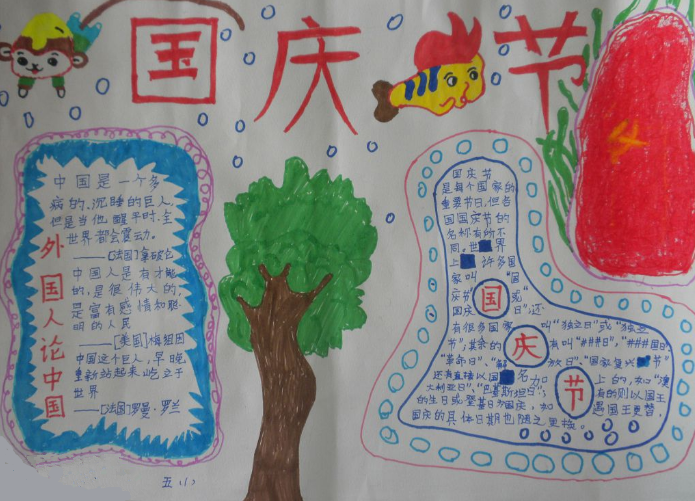 国庆节
中国是一个多
病的、沉睡的巨人,
但是当他醒乎时,全
世界都会震动。
——[法国]拿破仑
中国人是有才能
的,是很伟大的,
是富有感情和聪
明的人民
——[美国]
中国这个巨人,早晚
重新站起来,屹立于
世界
——[法国]罗曼·罗兰
外国人论中国
国庆节
是每个国家的
重要节日,但各
国国庆节的
名称有所不
同。世 界
上 许多国
家叫“国
庆节”或“
国庆日”,还
有很多国家叫“独立日”或“独立
节”,其余的有叫“###日”,“###国日”
“革命日”、“解放日”、“国家复兴 节”
还有直接以国 名加上的,如“澳
大利亚日”、“巴基斯坦日”;有的则以国王
的生日或登基日为国庆,如遇国王更替,
国庆的具体日期也随之更换。
国
庆
节
五(1)